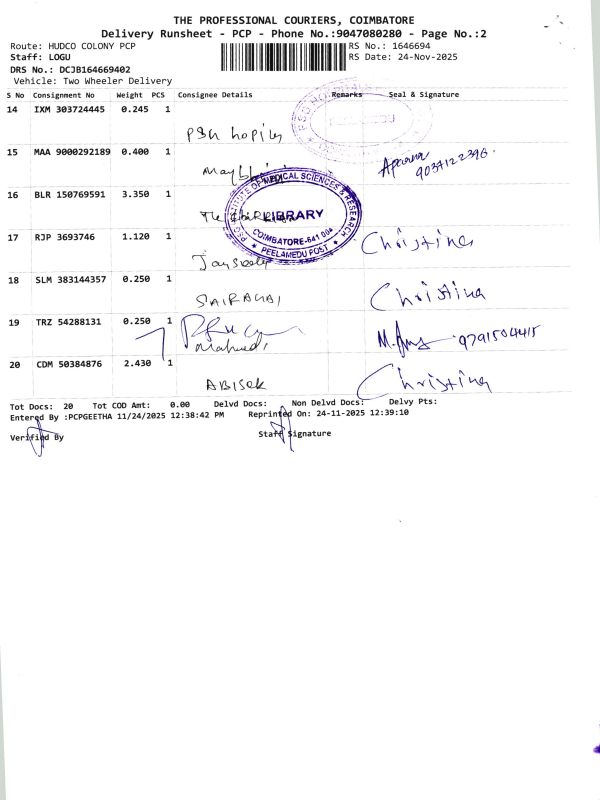 THE PROFESSIONAL COURIERS, COIMBATORE
Delivery Runsheet - PCP - Phone No.:9047080280 - Page No.:2
Route: HUDCO COLONY PCP
RS No.: 1646694
Staff: LOGU
RS Date: 24-Nov-2025
DRS No.: DCJB164669402
Vehicle: Two Wheeler Delivery
S No Consignment No Weight PCS Consignee Details Remarks Seal & Signature
14 IXM 303724445 0.245 1
PSG
15 MAA 9000292189 0.400 1
Aparna
9037122396.
16 BLR 150769591 3.350 1
The
PSG INSTITUTE OF MEDICAL SCIENCES & RESEARCH
LIBRARY
COIMBATORE-641 004
PEELAMEDU POST
17 RJP 3693746 1.120 1
Christina
18 SLM 383144357 0.250 1
SAIRAHAI
Christina
19 TRZ 54288131 0.250 1
9791504415
20 CDM 50384876 2.430 1
ABISEK
Christina
Tot Docs: 20 Tot COD Amt: 0.00 Delvd Docs: Non Delvd Docs: Delvy Pts:
Entered By :PCPGEETHA 11/24/2025 12:38:42 PM Reprinted On: 24-11-2025 12:39:10
Verified By
Staff Signature